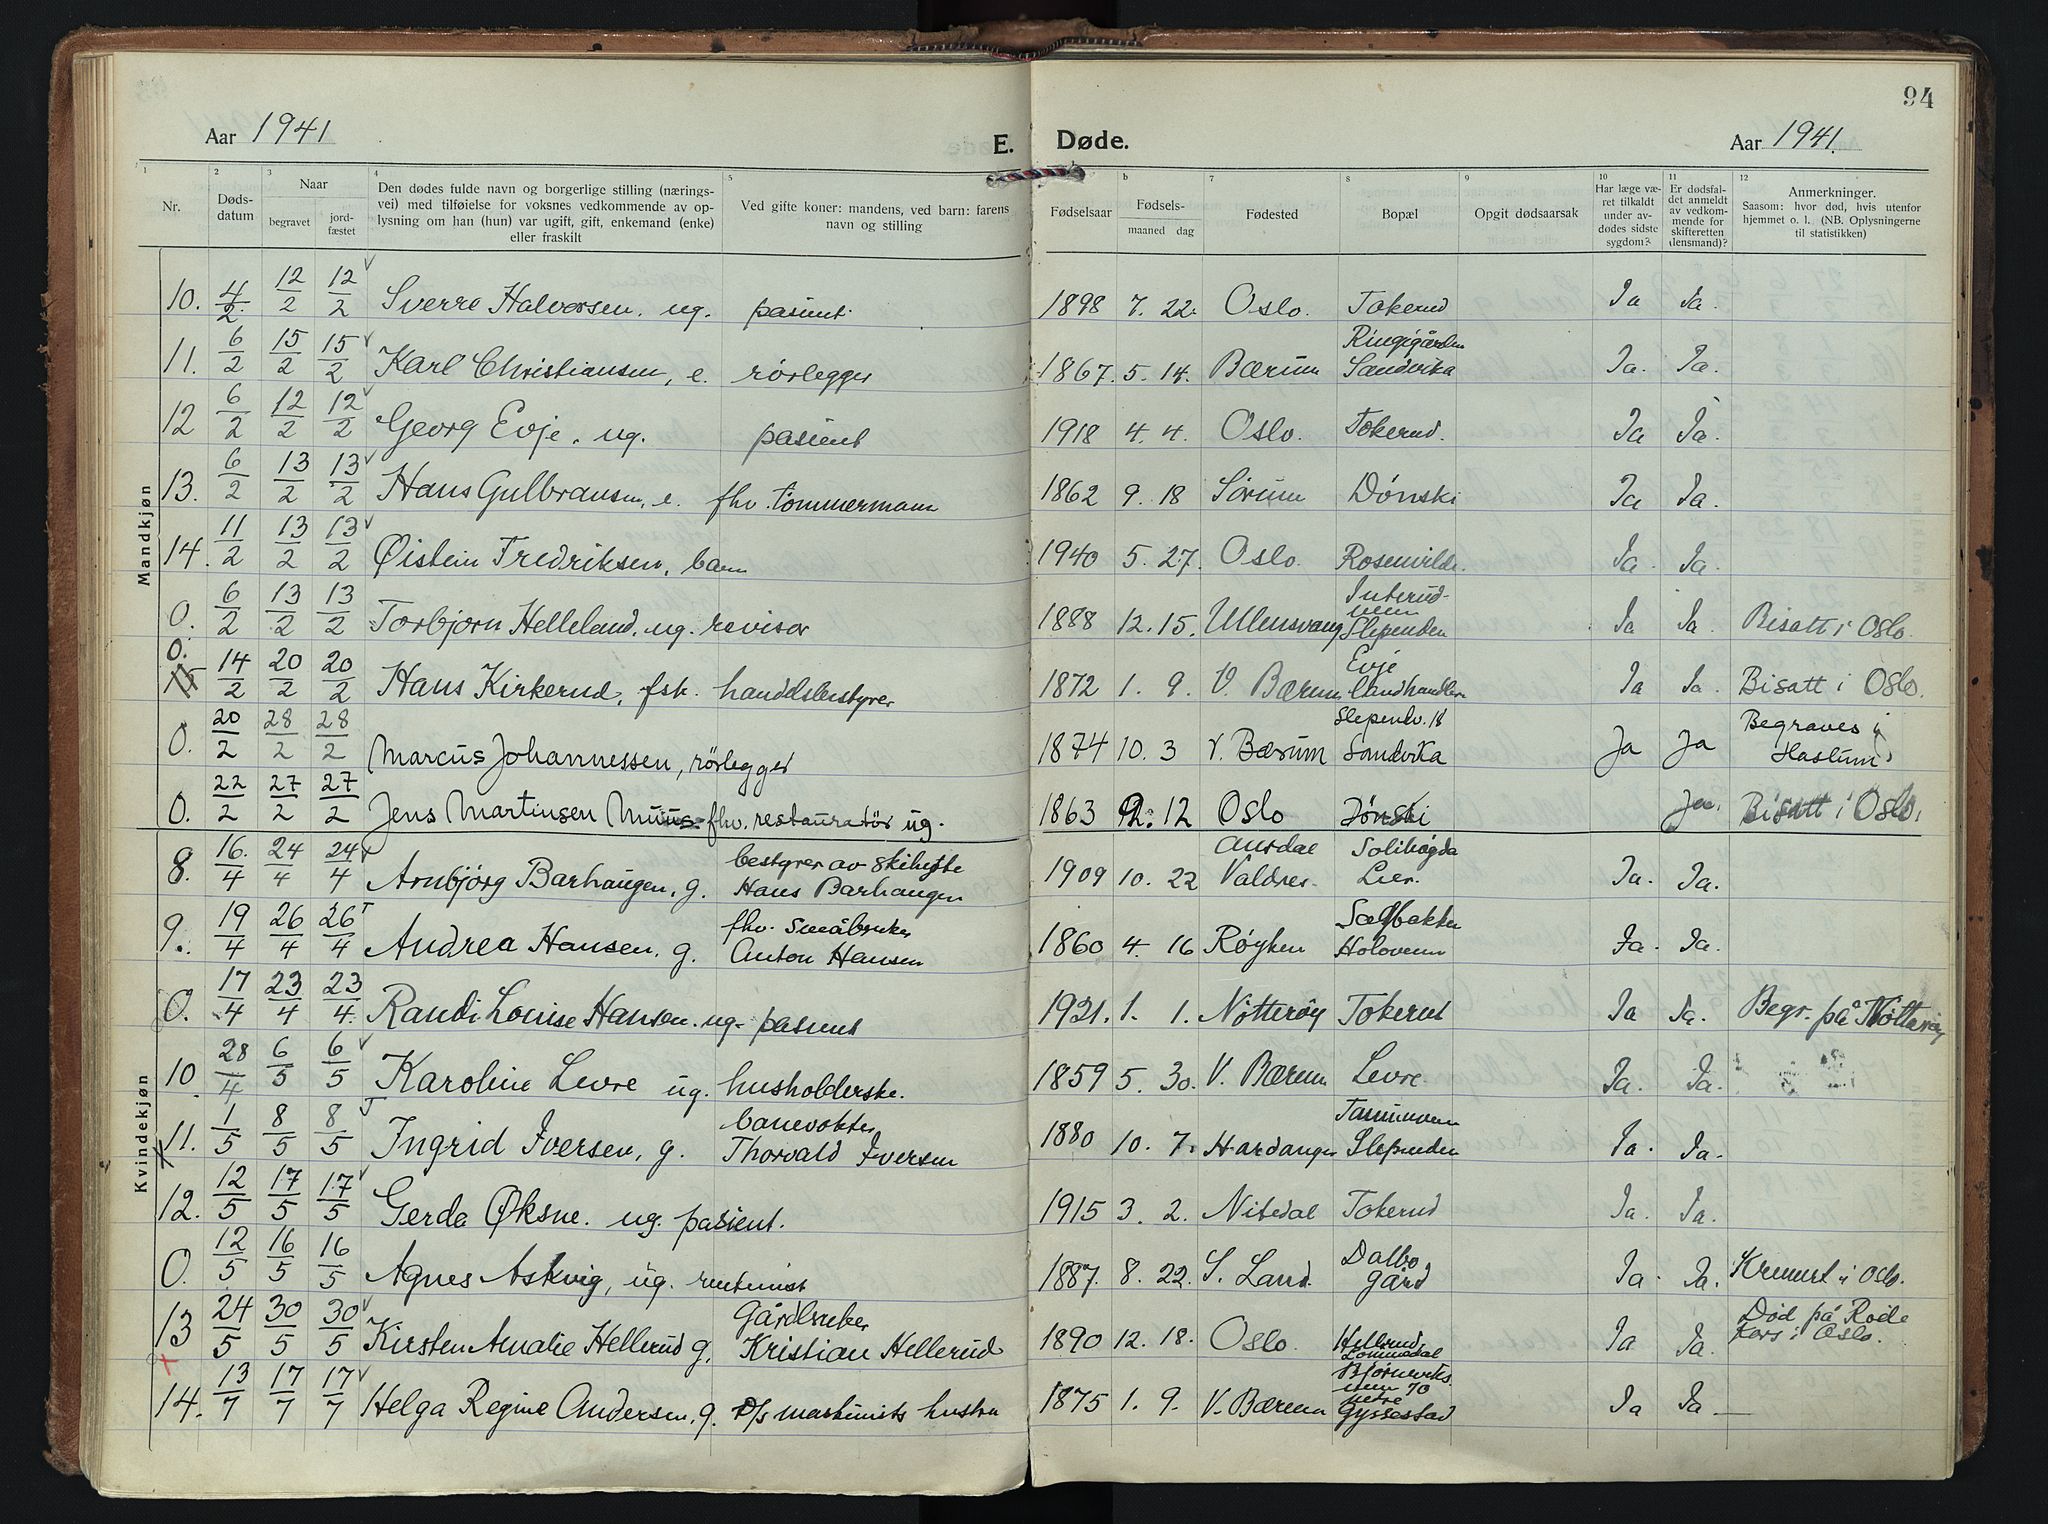 94
Aar 1941 E. Døde. Aar 1941.
1 2 3 4 5 6 7 8 9 10 11 12
Nr.
Døds-
datum
Naar
begravet
jord-
fæstet
Den dødes fulde navn og borgerlige stilling (nærings-
vei) med tilføielse for voksnes vedkommende av op-
lysning om han (hun) var ugift, gift, enkemand (enke)
eller fraskilt
Ved gifte koner: mandens, ved barn: farens
navn og stilling
Fødselsaar
b
Fødsels-
maaned dag
Fødested
Bopæl
Opgit dødsaarsak
Har læge væ-
ret tilkaldt
under av-
dødes sidste
sygdom?
Er dødsfal-
det anmeldt
av vedkom-
mende for
skifteretten
(lensmand)?
Anmerkninger.
Saasom: hvor død, hvis utenfor
hjemmet o. l. (NB. Oplysningerne
til statistikken)
Mandkjøn
10. 4/2 12/2 12/2 Sverre Halvorsen, ug. pasient. 1898 7. 22. Oslo. Tokerud Ja Ja.
11. 6/2 15/2 15/2 Karl Christiansen, e. rørlegger 1867. 5. 14. Bærum Ringigården
Sandvika Ja. Ja.
12 6/2 12/2 12/2 Georg Evje, ug. pasient 1918 4. 4. Oslo. Tokerud. Ja Ja.
13. 6/2 13/2 13/2 Hans Gulbransen, e. fhv. tømmermann 1862 9. 18 Sørum Dønski Ja Ja.
14. 11/2 13/2 13/2 Øistein Fredriksen, barn 1940 5. 27. Oslo. Rosenvilde. Ja. Ja.
0. 6/2 13/2 13/2 Torbjørn Helleland, ug. revisor 1888 12. 15. Ullensvang
Slependen Ja Ja. Bisatt i Oslo.
0.
15 14/2 20/2 20/2 Hans Kirkerud, fsk. handdlsbestyrer 1872 1. 9. V. Bærum Evje
landhandleri Ja Ja. Bisatt i Oslo.
0. 20/2 28/2 28/2 Marcus Johannessen, rørlegger 1874 10. 3 V. Bærum Slependv. 18
Sandvika Ja Ja Begraves i
Haslum
0. 22/2 27/2 27/2 Jens Martinsen Muus fhv. restauratør ug. 1863 12 Oslo Dønski Ja. Bisatt i Oslo.
Kvindekjøn
8. 16/4 24/4 24/4 Arnbjörg Barhaugen, g. bestyrer av skihytte
Hans Barhaugen 1909 10. 22 Aurdal
Valdres. Solihøgda
Lier. Ja. Ja.
9. 19/4 26/4 26/4 Andrea Hansen, g. fhv. småbruker
Anton Hansen 1860 4. 16 Røyken
Ja. Ja.
0. 17/4 23/4 23/4 Randi Louise Hansen. ug. pasient 1921. 1. 1. Nötteröy Tokerud Ja Ja. Begr. på Nötteröy
10. 28/4 6/5 6/5 Karoline Levre ug. husholderske. 1859 5. 30. V. Bærum Levre. Ja. Ja.
11. 1/5 8/5 8/5 Ingrid Iversen, g. banevokter
Thorvald Iversen 1880 10. 7. Hardanger Tanumveien
Slependen Ja. Ja.
12. 12/5 17/5 17/5 Gerda Øksne. ug. pasient. 1915 3. 2. Nitedal Tokerud Ja. Ja.
0. 12/5 16/5 16/5 Agnes Askvig, ug. rentenist 1887. 8. 22. S. Land. Dalbo
gård Ja. Ja. Kremert i Oslo.
13 24/5 30/5 30/5 Kirsten Amalie Hellerud g. Gårdbruker
Kristian Hellerud 1890 12. 18. Oslo. Hellerud,
Lommedal Ja Ja. Død på Røde
Kors i Oslo.
14. 13/7 17/7 17/7 Helga Regine Andersen, g. D/s maskinists hustru 1875 1. 9. V. Bærum Bjørneveks-
veien 70
nedre
Gyssestad Ja Ja —